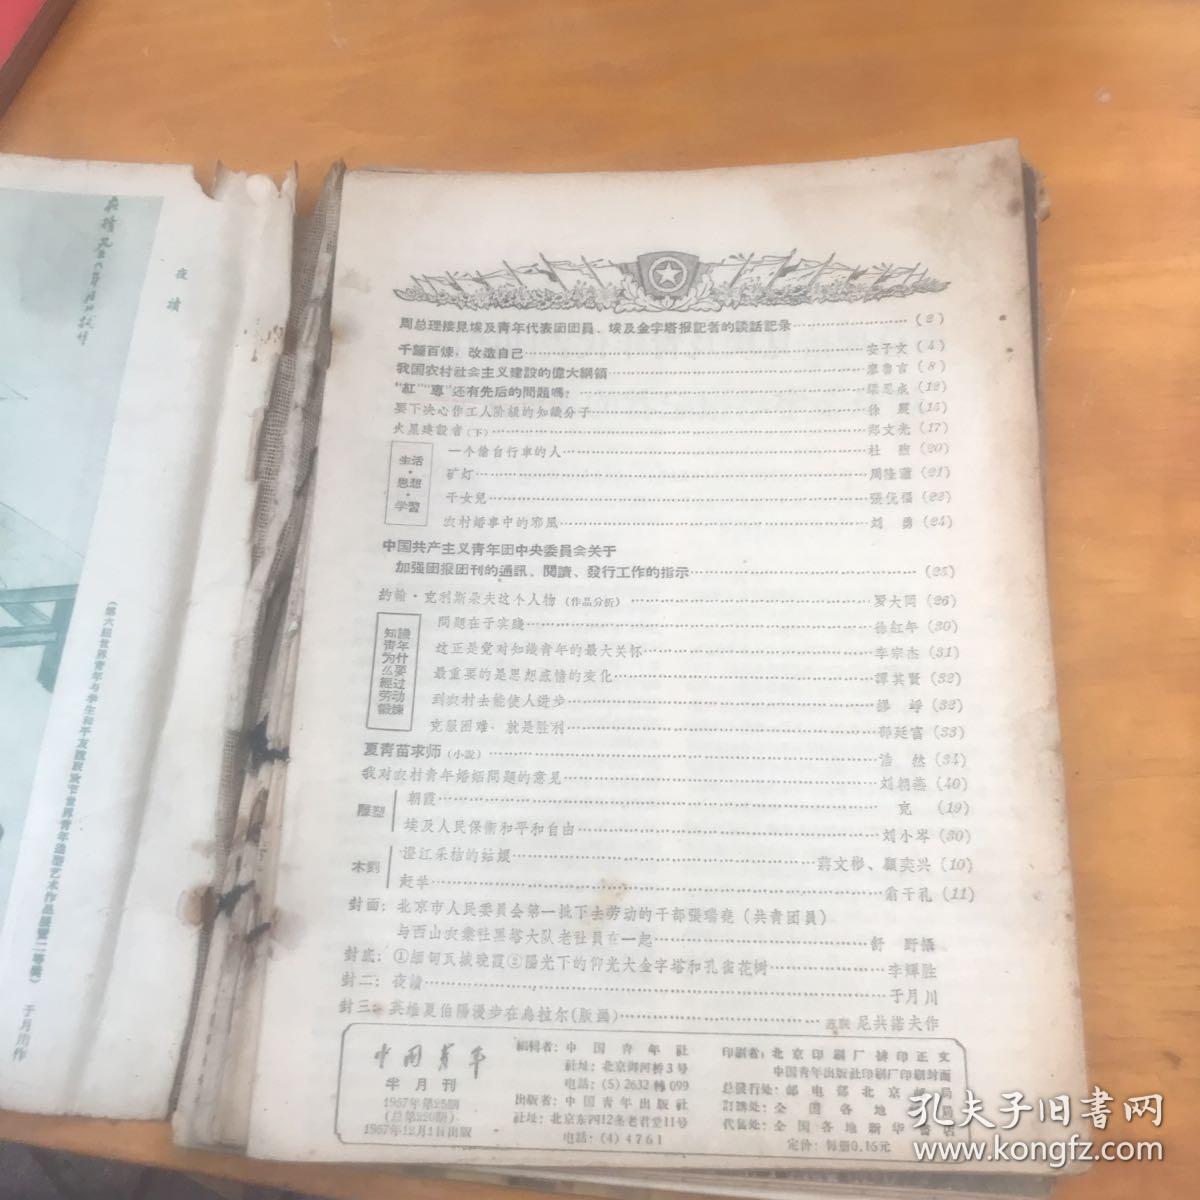 夜讀
(第六屆世界青年与学生和平友誼联欢节世界青年造型艺术作品展覽二等奬) 于月川作
周总理接見埃及青年代表团团員、埃及金字塔报記者的談話記录 (2)
千錘百煉，改造自己 安子文 (4)
我国农村社会主义建設的偉大綱領 廖魯言 (8)
"紅""專"还有先后的問題嗎？ (12)
要下决心作工人阶級的知識分子 徐 (15)
火星建設者(下) 郑文光 (17)
生活・思想・学習
一个偷自行車的人 杜 (20)
矿灯 周隆 (21)
干女兒 張 (22)
农村婚事中的邪風 刘 勇 (24)
中国共产主义青年团中央委員会关于
加强团报团刊的通訊、閱讀、發行工作的指示 (25)
約翰・克利斯朵夫这个人物 (作品分析) 罗大冈 (26)
知識青年为什么要經过劳动鍛煉
問題在于实踐 徐紅年 (30)
这正是党对知識青年的最大关怀 李宗杰 (31)
最重要的是思想感情的变化 譚其賢 (32)
到农村去能使人进步 (32)
克服困难，就是胜利 郭延富 (33)
夏青苗求师 (小說) 浩 然 (34)
我对农村青年婚姻問題的意見 刘朝燕 (40)
雕塑
朝霞 克 (19)
埃及人民保衛和平和自由 刘小岑 (30)
木刻
澄江采桔的姑娘 蔣文彬、顧奕兴 (10)
赶羊 俞干礼 (11)
封面：北京市人民委員会第一批下去劳动的干部張瑞堯（共青团員）
与西山农業社黑塔大队老社員在一起 舒 野攝
封底：①緬甸瓦城晚霞②陽光下的仰光大金字塔和孔雀花树 李輝胜
封二：夜讀 于月川
封三：英雄夏伯陽漫步在烏拉尔(版画) 苏联 尼共諾夫作
中国青年
半月刊
1957年第23期
(总第220期)
1957年12月1日出版
編輯者：中国青年社
社址：北京御河桥3号
电話：(5)2632轉099
出版者：中国青年出版社
社址：北京东四12条老君堂11号
电話：(4)4761
印刷者：北京印刷厂排印正文
中国青年出版社印刷厂印刷封面
总發行处：邮电部北京邮局
訂購处：全国各地邮局
代售处：全国各地新华書店
定价：每册0.15元
孔夫子旧書网
www.kongfz.com